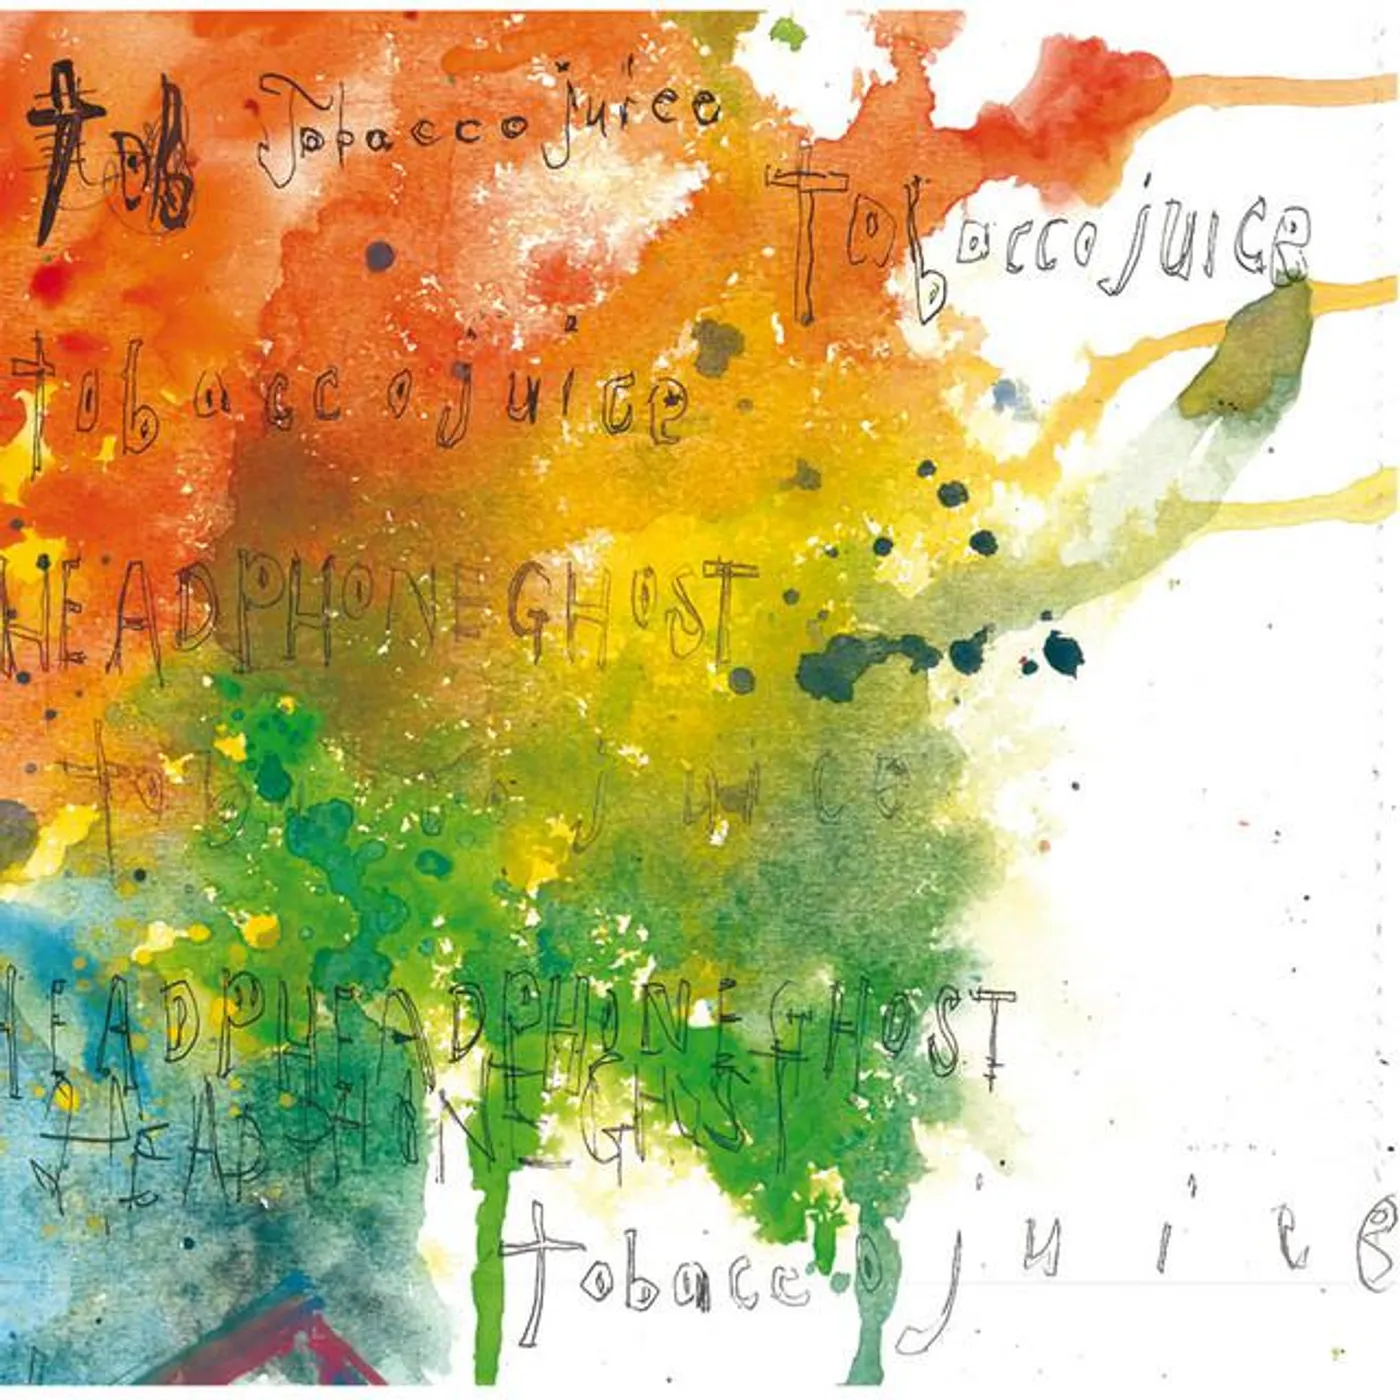 tob Tobacco juice
Tobacco juice
tobacco juice
HEADPHONEGHOST
Tobacco juice
HEADPHEADPHONEGHOST
HEADPHONEGHOST
tobacco juice